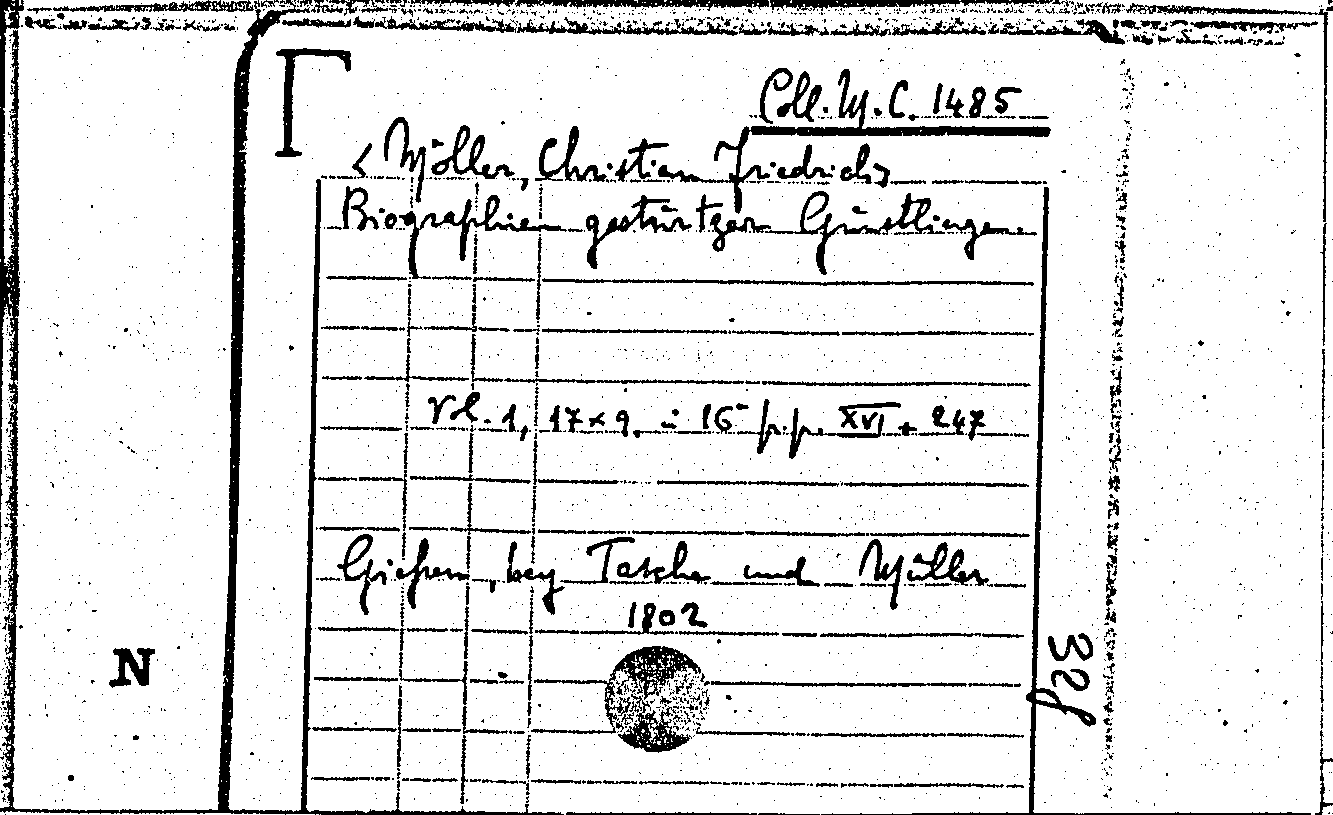 Coll. M. C. 1485
< Möller, Christian Friedrich>
Biographien gestürtzer Günstlingen.
Vol. 1, 17×9, in 16° pp. XVI + 247
Gießen, bey Tasche und Müller
1802
N
32f